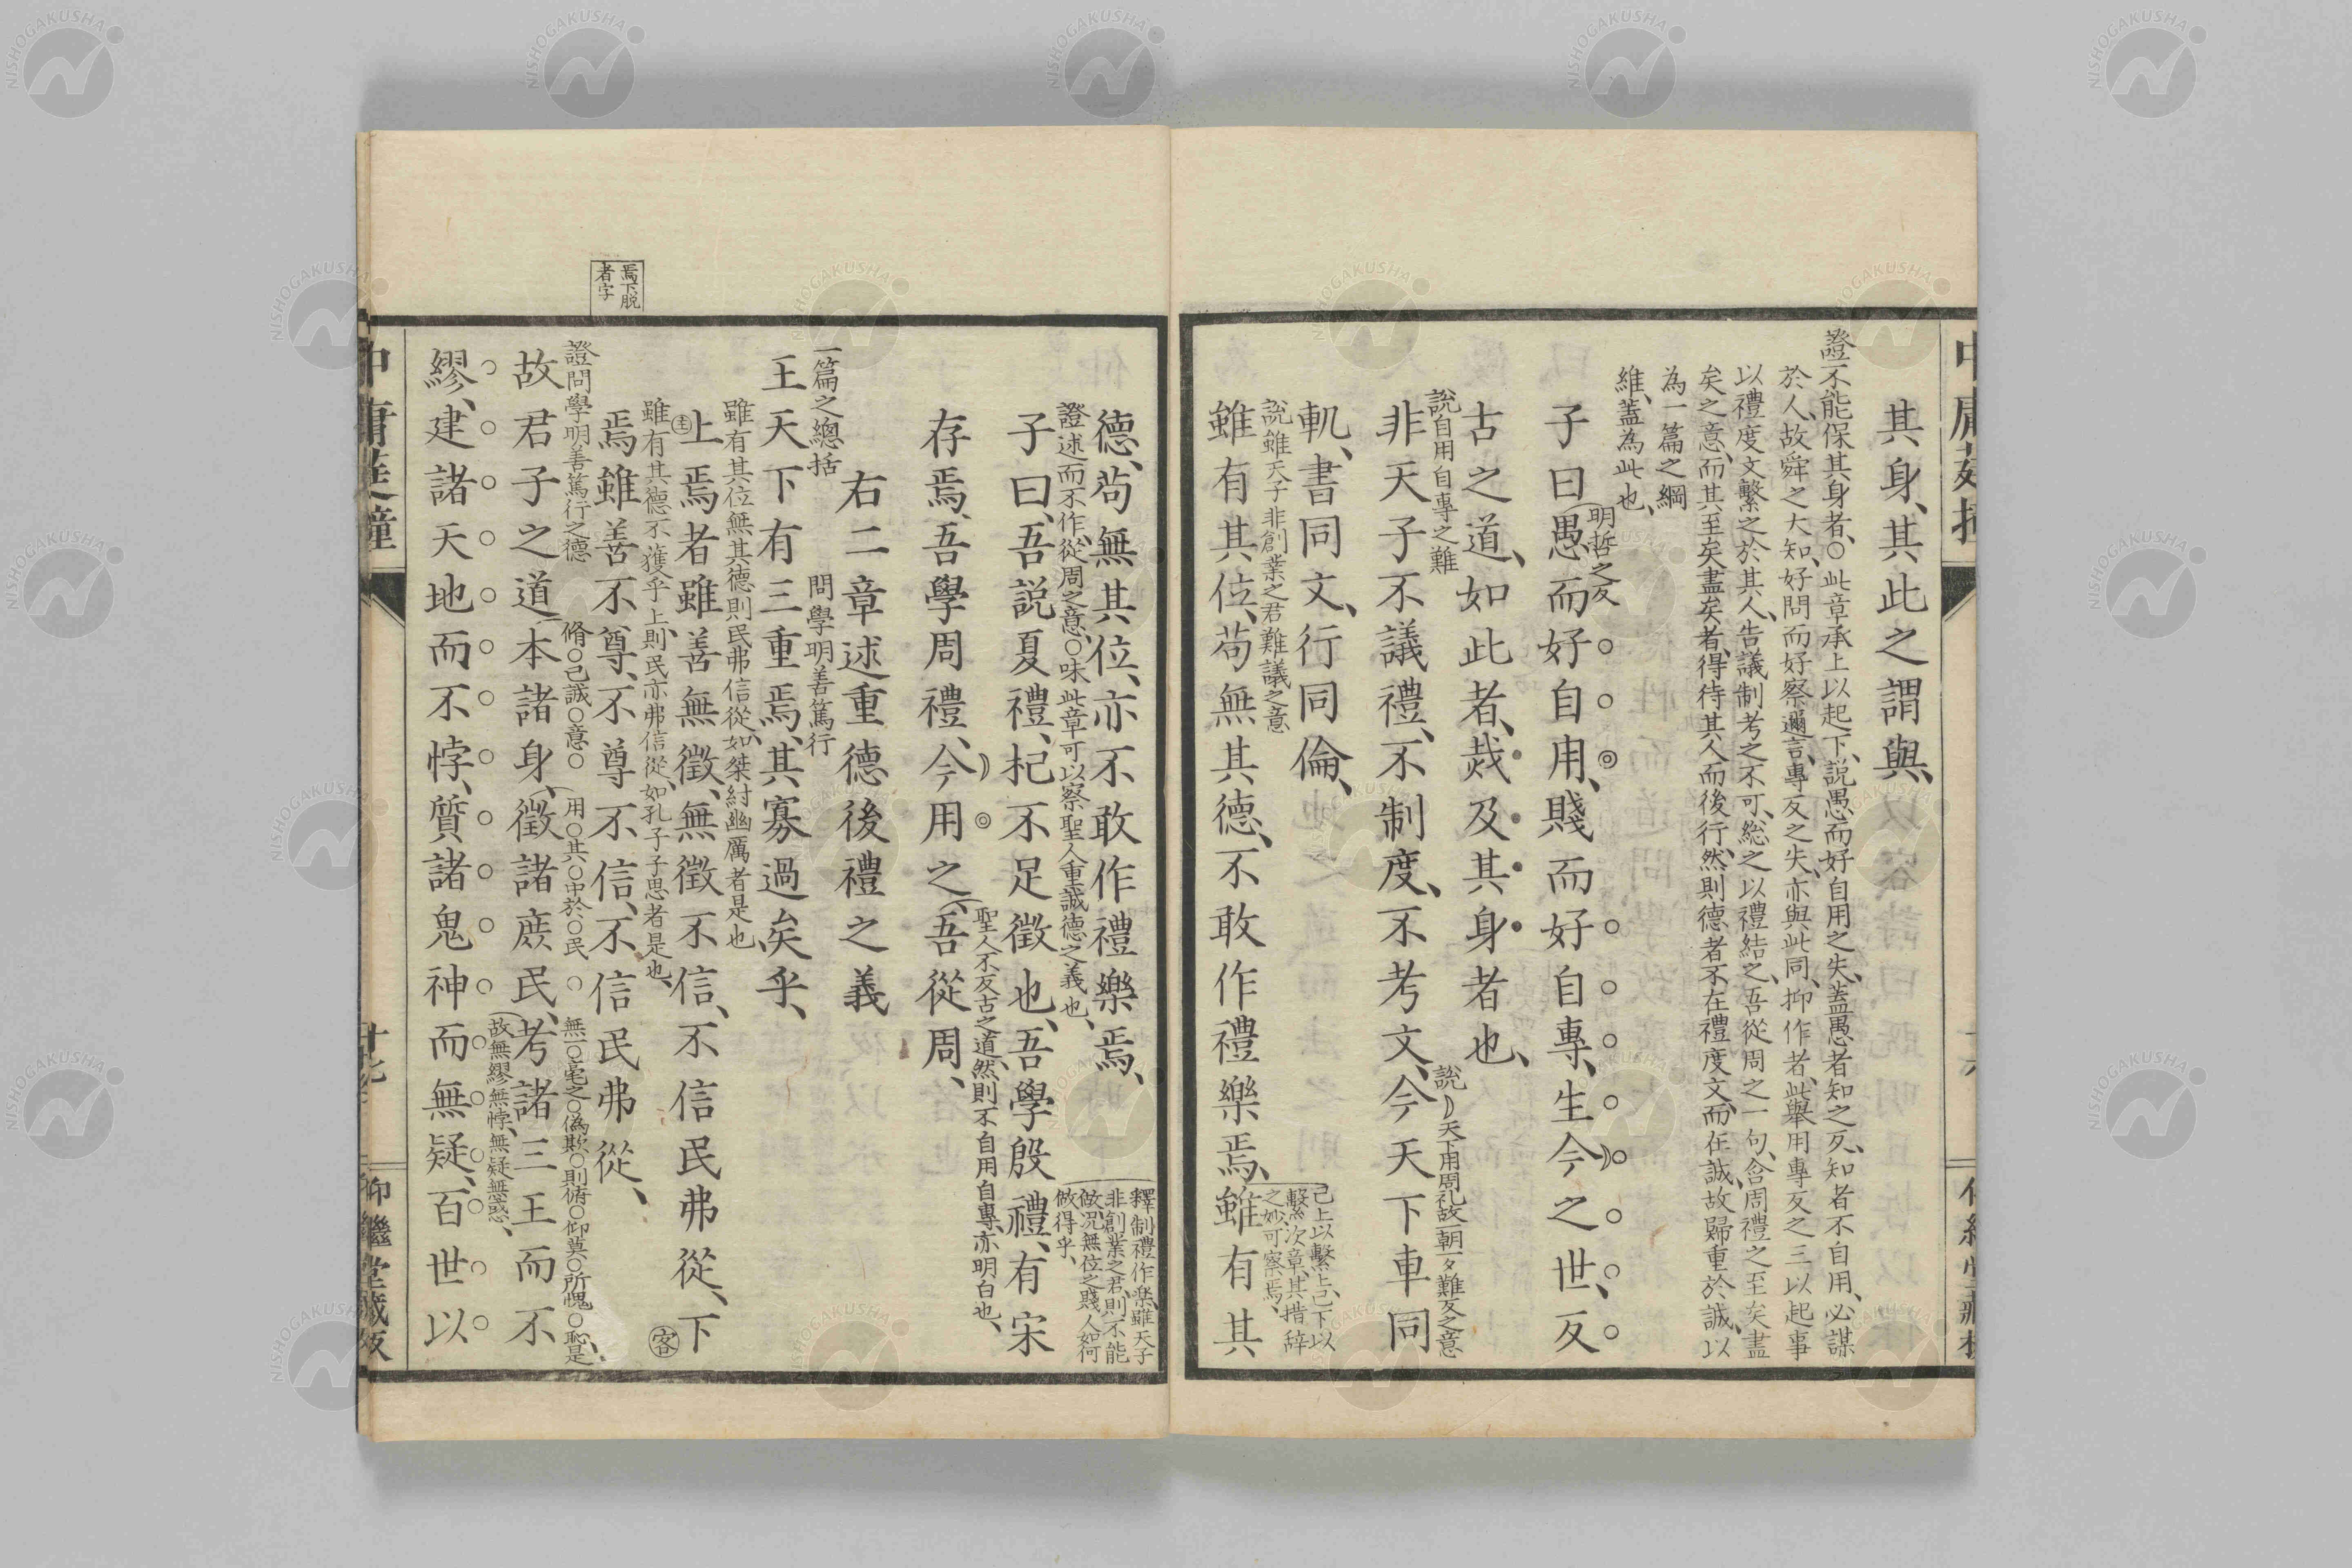 其身、其此之謂與、
證不能保其身者、○此章承上以起下、説愚而好自用之失、蓋愚者知之反、知者不自用、必謀
於人、故舜之大知、好問而好察邇言、專反之失、亦與此同、抑作者、此舉用專反之三以起事
以禮度文繫之於其人、告議制考之不可、総之以禮結之、吾從周之一句、含周禮之至矣盡
矣之意、而其至矣盡矣者、得待其人而後行、然則德者不在禮度文、而在誠、故歸重於誠、以
為一篇之綱
維、蓋為此也、
明哲之反
子曰愚而好自用、賤而好自專、生今之世、反
古之道、如此者、烖及其身者也、
説自用自專之難
説天下用周礼故一朝一夕難反之意
非天子不議禮、不制度、不考文、今天下車同
軌、書同文、行同倫、
説雖天子非創業之君難議之意
已上以繫上、已下以
繫次章、其措辞
之妙可察焉、
雖有其位、苟無其德、不敢作禮樂焉、雖有其
德、苟無其位、亦不敢作禮樂焉、
釋制禮作樂、雖天子
非創業之君、則不能
做、况無位之賤人如何
做得乎、
證述而不作、從周之意、○味此章可以察聖人重誠德之義也、
子曰、吾説夏禮、杞不足徴也、吾學殷禮、有宋
聖人不反古之道、然則不自用自專、亦明白也、
存焉、吾學周禮、今用之、吾從周、
右二章述重德後禮之義
一篇之總括
問學明善篤行
王天下有三重焉、其寡過矣乎、
雖有其位無其德則民弗信從、如桀紂幽厲者是也
上焉者雖善無徴、無徴不信、不信民弗從、下
主
客
雖有其德不獲乎上、則民亦弗信從、如孔子子思者是也、
焉雖善不尊、不尊不信、不信民弗從、
焉下脱
者字
證問學明善篤行之德
脩○己誠○意○
用○其○中於○民
○無一○毫之○偽欺○則俯○仰莫○所愧○恥是
故君子之道、本諸身、徴諸庶民、考諸三王而不
故無繆無悖、無疑無惑、
繆、建諸天地而不悖、質諸鬼神而無疑、百世以
仰繼堂蔵版
NISHOGAKUSHA